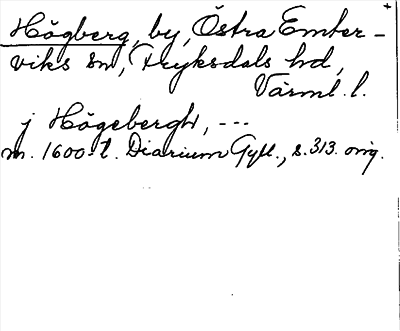 Högberg, by, Östra Ämter-
viks sn, Fryksdals hd,
Värml. l.
j Högebergh, ---
m. 1600-t. Diarium Gyll., s. 313. orig.